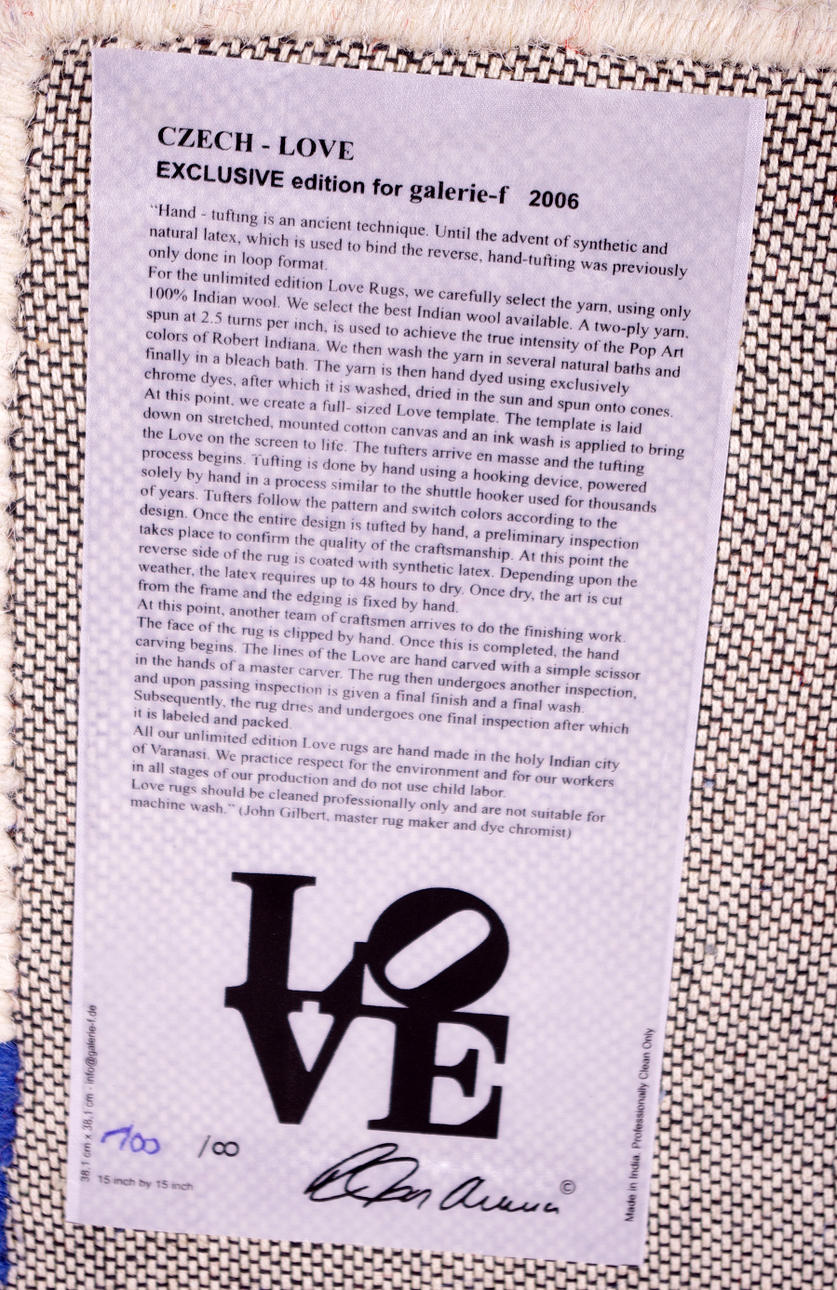 CZECH - LOVE
EXCLUSIVE edition for galerie-f 2006
"Hand - tufting is an ancient technique. Until the advent of synthetic and
natural latex, which is used to bind the reverse, hand-tufting was previously
only done in loop format.
For the unlimited edition Love Rugs, we carefully select the yarn, using only
100% Indian wool. We select the best Indian wool available. A two-ply yarn,
spun at 2.5 turns per inch, is used to achieve the true intensity of the Pop Art
colors of Robert Indiana. We then wash the yarn in several natural baths and
finally in a bleach bath. The yarn is then hand dyed using exclusively
chrome dyes, after which it is washed, dried in the sun and spun onto cones.
At this point, we create a full- sized Love template. The template is laid
down on stretched, mounted cotton canvas and an ink wash is applied to bring
the Love on the screen to life. The tufters arrive en masse and the tufting
process begins. Tufting is done by hand using a hooking device, powered
solely by hand in a process similar to the shuttle hooker used for thousands
of years. Tufters follow the pattern and switch colors according to the
design. Once the entire design is tufted by hand, a preliminary inspection
takes place to confirm the quality of the craftsmanship. At this point the
reverse side of the rug is coated with synthetic latex. Depending upon the
weather, the latex requires up to 48 hours to dry. Once dry, the art is cut
from the frame and the edging is fixed by hand.
At this point, another team of craftsmen arrives to do the finishing work.
The face of the rug is clipped by hand. Once this is completed, the hand
carving begins. The lines of the Love are hand carved with a simple scissor
in the hands of a master carver. The rug then undergoes another inspection,
and upon passing inspection is given a final finish and a final wash.
Subsequently, the rug dries and undergoes one final inspection after which
it is labeled and packed.
All our unlimited edition Love rugs are hand made in the holy Indian city
of Varanasi. We practice respect for the environment and for our workers
in all stages of our production and do not use child labor.
Love rugs should be cleaned professionally only and are not suitable for
machine wash." (John Gilbert, master rug maker and dye chromist)
LO
VE
38,1 cm x 38,1 cm - info@galerie-f.de
/∞
15 inch by 15 inch
©
Made in India. Professionally Clean Only